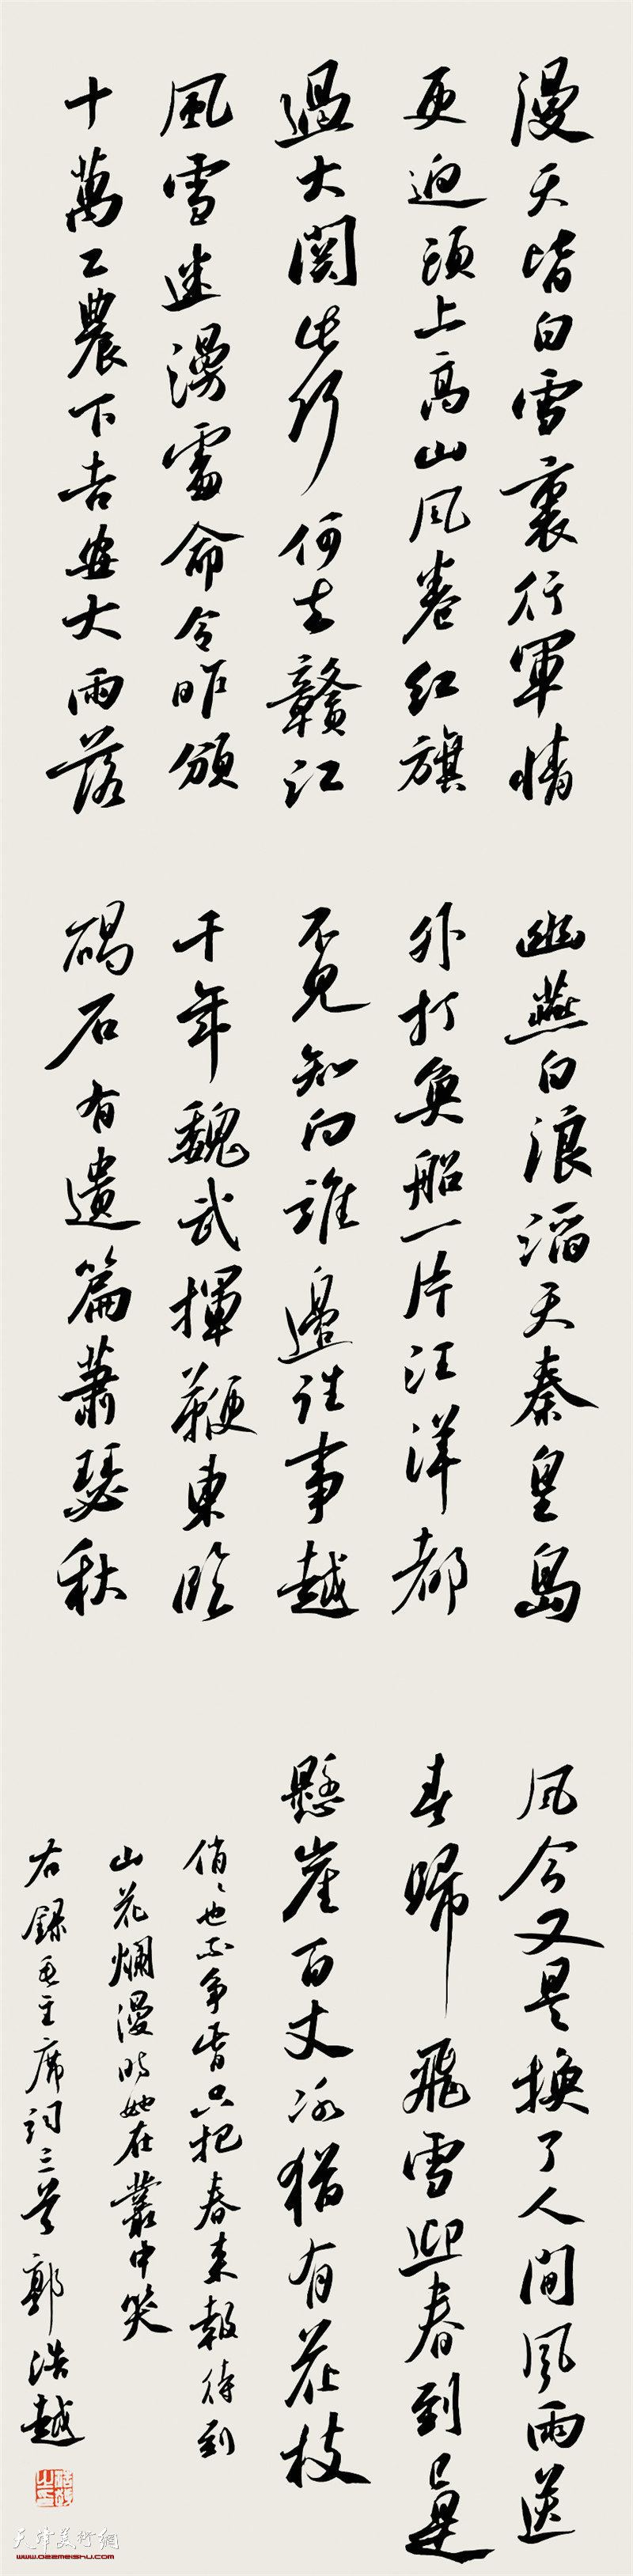 漫天皆白雪裏行軍情
更迫頭上高山風卷紅旗
過大關此行何去贛江
風雪迷漫處命令昨頒
十萬工農下吉安大雨落
幽燕白浪滔天秦皇島
外打魚船一片汪洋都
不見知向誰邊往事越
千年魏武揮鞭東臨
碣石有遺篇蕭瑟秋
風今又是換了人間風雨送
春歸飛雪迎春到已是
懸崖百丈冰猶有花枝
俏〻也不爭春只把春來報待到
山花爛漫時她在叢中笑
右錄毛主席詞三首 郭浩越
天津美術網
www.022meishu.com